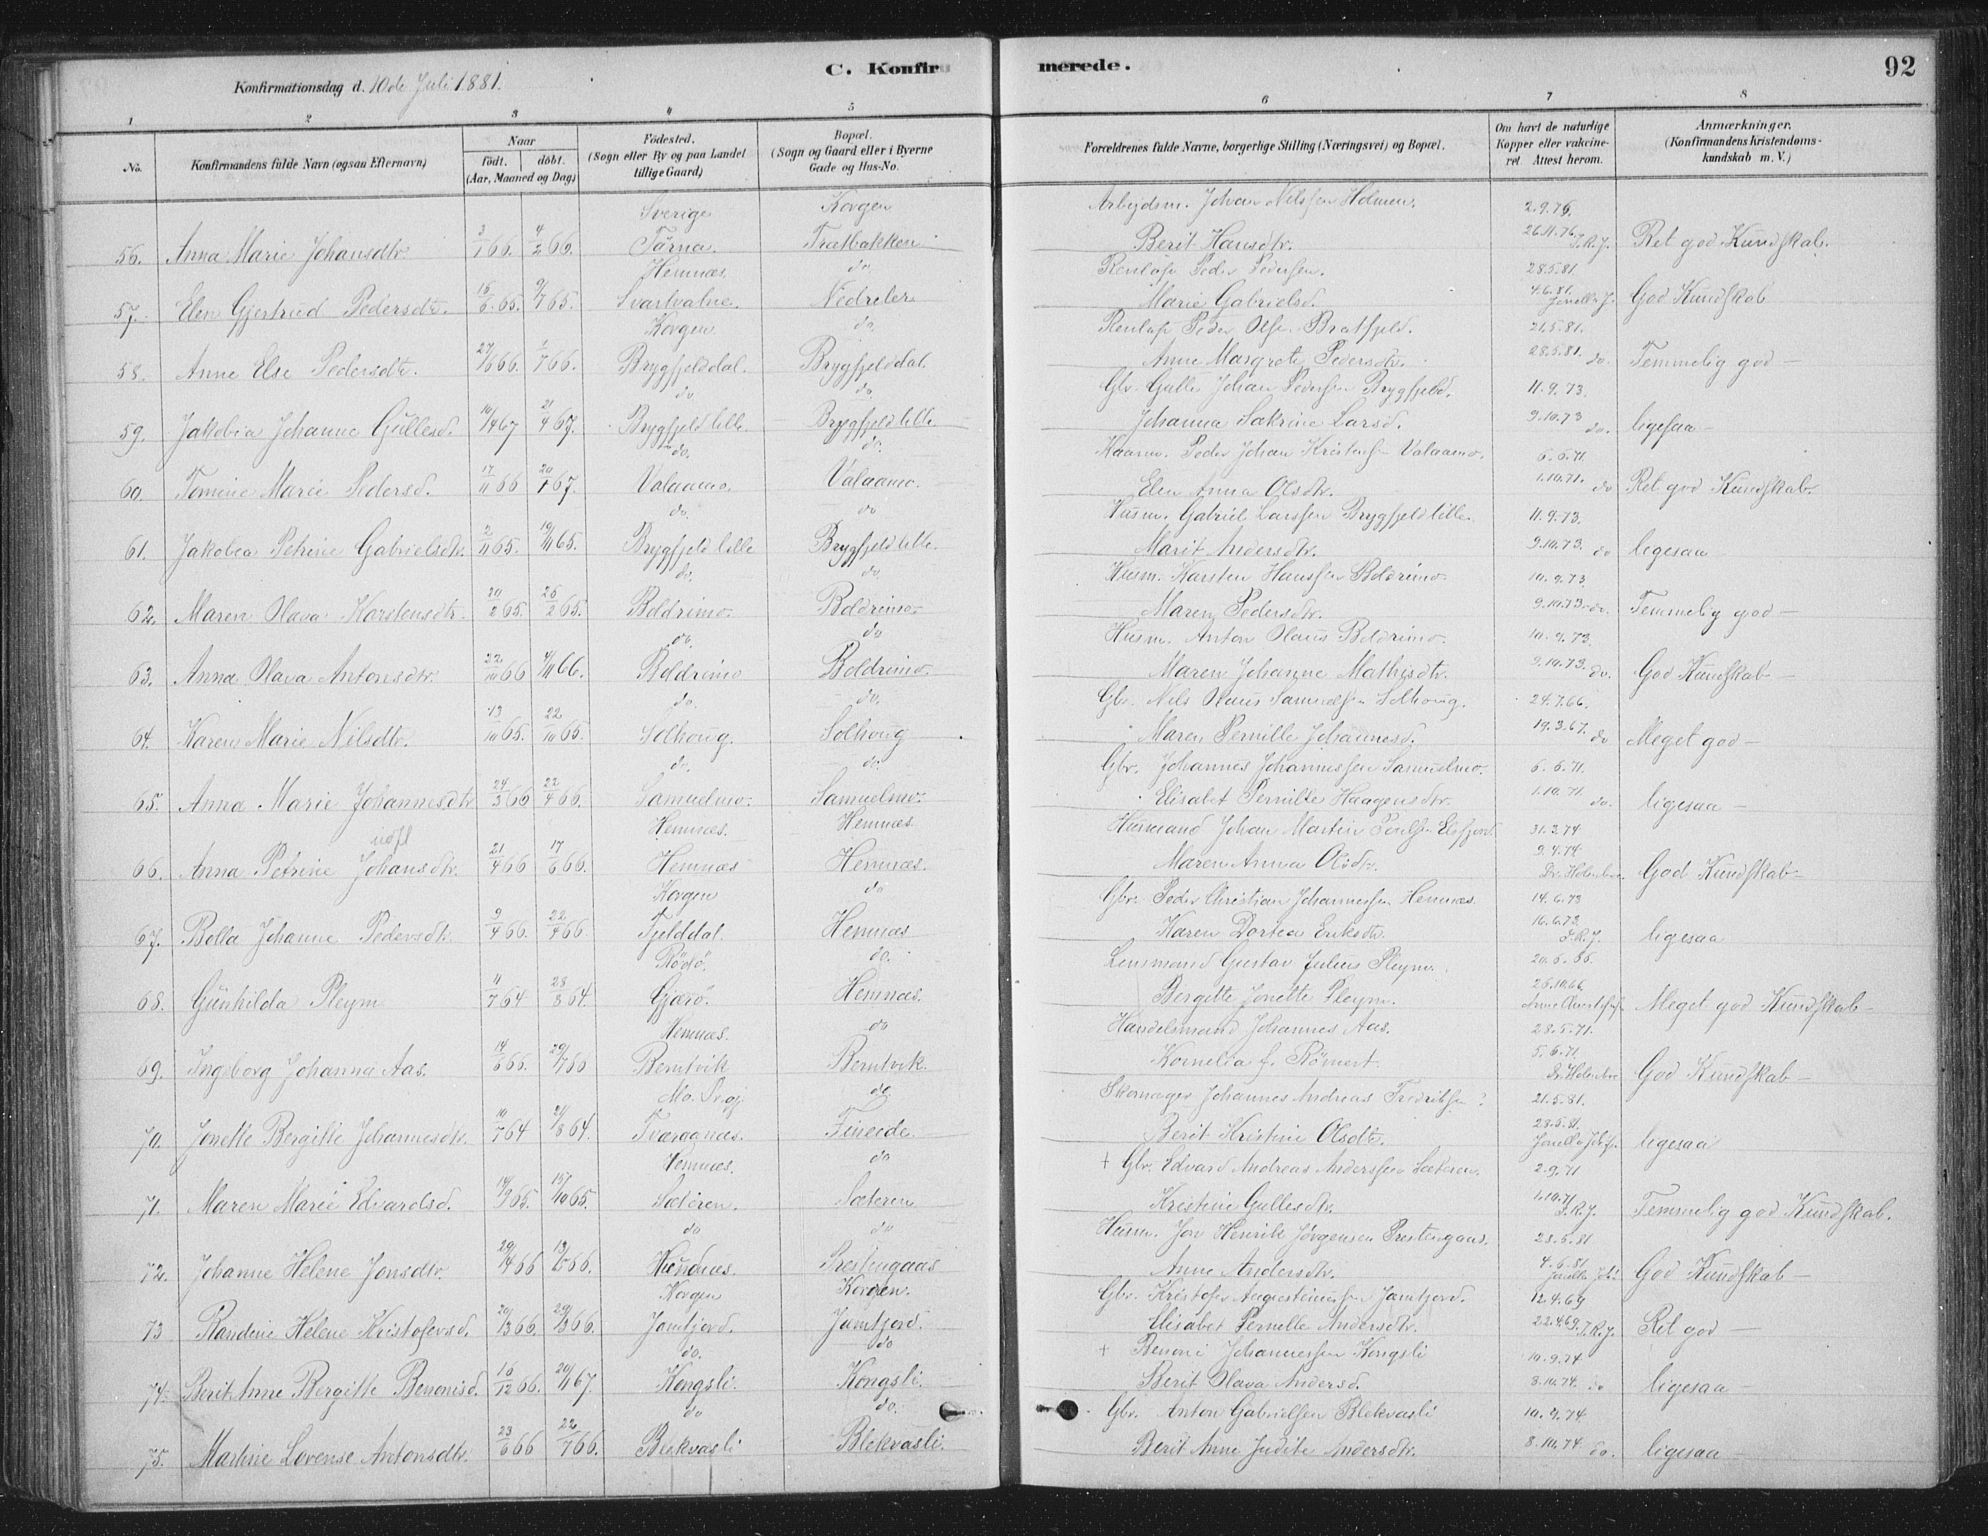 C. Konfirmerede. 92
Konfirmationsdag d. 10de Juli 1881.
1 2 3 4 5 6 7 8
No. Konfirmandens fulde Navn (ogsaa Efternavn) Naar født. døbt. (Aar, Maaned og Dag) Fødested. (Sogn eller By og paa Landet tillige Gaard) Bopæl. (Sogn og Gaard eller i Byerne Gade og Hus-No. Forældrenes fulde Navne, borgerlige Stilling (Næringsvei) og Bopæl. Om havt de naturlige Kopper eller vakcineret. Attest herom. Anmærkninger. (Konfirmandens Kristendomskundskab m. V.)
Sverige Korgen Arbejdsm. Johan Nilssen Holmen. 2.9.76.
56. Anna Marie Johansdtr. 2/1 66. 4/2 66. Tärna. Trætbakken Berit Hansdtr. 26.11.76. J.R.J. Ret god Kundskab.
Hemnæs. do. Renlap Peder Pedersen. 28.5.81.
57. Elen Gjertrud Pedersdtr. 15/6 65. 9/7 65. Svartvatne. Nedreler Marie Gabrielsd. 4.6.81. God Kundskab
Korgen do. Renlap Peder Olsen Bratfjeld. 21.5.81.
58. Anne Else Pedersdtr. 27/6 66. 1/7 66. Brygfjelddal. Brygfjelddal. Anne Margrete Pedersdtr. 28.5.81. do. Temmelig god —
do. do Gbr. Gulle Johan Pedersen Brygfjeld. 11.9.73.
59. Jakobia Johanne Gullesd. 14/4 67 21/4 67. Brygfjeld lille. Brygfjeld lille Johanna Sakrine Larsd. 9.10.73 do. ligesaa —
do. do. Peder Johan Kristensen Valaamo. 6.6.71.
60. Tomine Marie Pedersd. 17/11 66 20/1 67. Valaamo. Valaamo. Elen Anna Olsdtr. 1.10.71. do Ret god Kundskab.
do. do Husm. Gabriel Larssen Brygfjeld lille. 11.9.73.
61. Jakobea Petrine Gabrielsdtr. 2/11 65. 19/11 65. Brygfjeld lille Brygfjeld lille. Marit Andersdtr. 9.10.73. do ligesaa —
do. do. Husm. Karsten Hanssen Boldrimo. 10.9.73.
62. Maren Olava Karstensdtr. 20/2 65. 26/2 65. Boldrimo. Boldrimo. Maren Pedersdtr. 9.10.73. do. Temmelig god —
do. do Husm. Anton Olaus Boldrimo. 10.9.73.
63. Anna Olava Antonsdtr. 22/10 66 4/11 66. Boldrimo Boldrimo. Maren Johanne Mathisdtr. 9.10.73. do. God Kundskab —
do. do. Gbr. Nils Olaus Samuelsen Solhoug. 24.7.66.
64. Karen Marie Nilsdtr. 13/10 65. 22/10 65. Solhoug. Solhoug Maren Pernille Johannesd. 19.3.67. do Meget god —
do. do. Gbr. Johannes Johannessen Samuelmo. 6.6.71.
65. Anna Marie Johannesdtr. 24/3 66 22/4 66. Samuelmo. Samuelmo. Elisabet Pernille Haagensdtr. 1.10.71. do. ligesaa —
Hemnæs. Hemnæs. Husmand Johan Martin Poulsen Elsfjord 31.3.74
66. Anna Petrine Johansdtr. 21/4 66 17/6 66. Hemnæs Hemnæs. Maren Anna Olsdtr. 9.4.74 God Kundskab —
Korgen do Gbr. Peder Christian Johannessen Hemnæs. 14.6.73
67. Bolla Johanne Pedersdtr. 9/4 66. 22/4 66. Fjelddal. Hemnæs Karen Dortea Eriksdtr. 16.6.73. J.R.J. ligesaa
Rødø. do. Lensmand Gustav Julius Pleym. 20.6.66.
68. Gunhilda Pleym 11/7 64 28/8 64. Gjærø. Hemnæs. Bergitte Jonette Pleym. 26.10.66 Meget god Kundskab —
Hemnæs. do Handelsmand Johannes Aas. 28.5.71.
69. Ingeborg Johanna Aas. 14/6 66. 29/7 66 Berntvik Berntvik. Kornelia f. Römert 5.6.71. God Kundskab —
Mo. do. Skomager Johannes Andreas Fredriksen? 21.5.81.
70. Jonette Bergitte Johannesdtr. 10/7 64 21/8 64. Tværaanæs. Fineide. Berit Kristine Olsdtr. 28.5.81. ligesaa
Hemnæs. do + Gbr. Edvard Andreas Anderssen Sæteren. 2.9.71
71. Maren Marie Edvardsd. 14/9 65. 15/10 65. Sæteren. Sæteren Kristine Gullesdtr. 1.10.71 J.R.J. Temmelig god Kundskab.
do do Husm. Jon Henrik Jørgensen Prestengaas. 23.5.81
72. Johanne Helene Jonsdtr. 29/4 66 13/5 66. Hemnæs. Prestengaas Anne Andersdtr. 4.6.81 God Kundskab —
Korgen Korgen. Gbr. Kristofer Augustinussen Jamtjord. 12.4.69
73 Randine Helene Kristofersd. 20/3 66 29/3 66. Jamtjord. Jamtjord. Elisabet Pernille Andersdtr. 22.4.69. J.R.J. Ret god —
do. do + Benoni Johannessen Kongsli 10.9.74
74. Berit Anne Bergitte Benonisd. 16/12 66. 20/1 67. Kongsli. Kongsli. Berit Olava Andersd. 8.10.74. do ligesaa —
do do. Gbr. Anton Gabrielsen Blekvasli 10.9.74
75. Martine Lovense Antonsdtr. 23/6 66 22/7 66. Blekvasli Blekvasli. Berit Anne Judite Andersdtr. 8.10.74. do. ligesaa —